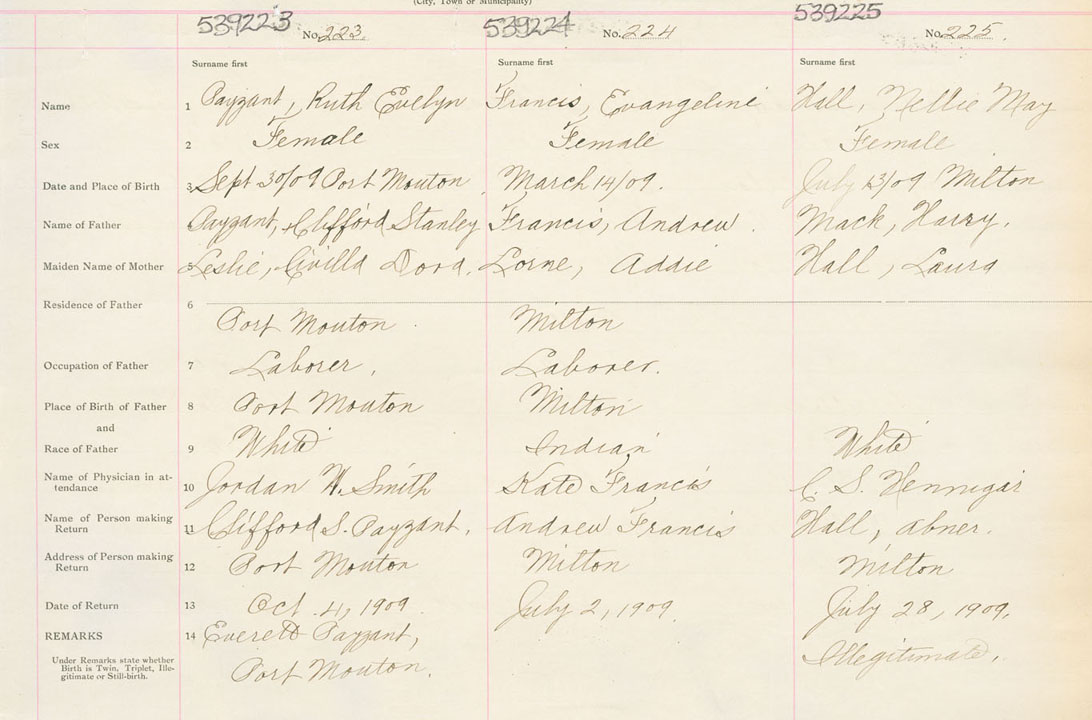 (City, Town or Municipality)
539223 No. 223. 539224 No. 224 539225 No. 225.
Surname first Surname first Surname first
Name 1 Payzant, Ruth Evelyn Francis, Evangeline Hall, Nellie May
Sex 2 Female Female Female
Date and Place of Birth 3 Sept 30/09 Port Mouton March 14/09. July 13/09 Milton
Name of Father Payzant, Clifford Stanley Francis, Andrew. Mack, Harry.
Maiden Name of Mother 5 Leslie, Civilla Dora. Lorne, Addie Hall, Laura
Residence of Father 6
Port Mouton Milton
Occupation of Father 7 Laborer, Laborer.
Place of Birth of Father 8 Port Mouton Milton
and
Race of Father 9 White Indian White
Name of Physician in at-
tendance 10 Jordan W. Smith Kate Francis C. S. Hennigar
Name of Person making
Return 11 Clifford S. Payzant. Andrew Francis Hall, Abner.
Address of Person making
Return 12 Port Mouton Milton Milton
Date of Return 13 Oct. 4, 1909. July 2, 1909. July 28, 1909.
REMARKS 14 Everett Payzant,
Under Remarks state whether
Birth is Twin, Triplet, Ille-
gitimate or Still-birth.
Port Mouton. Illegitimate.